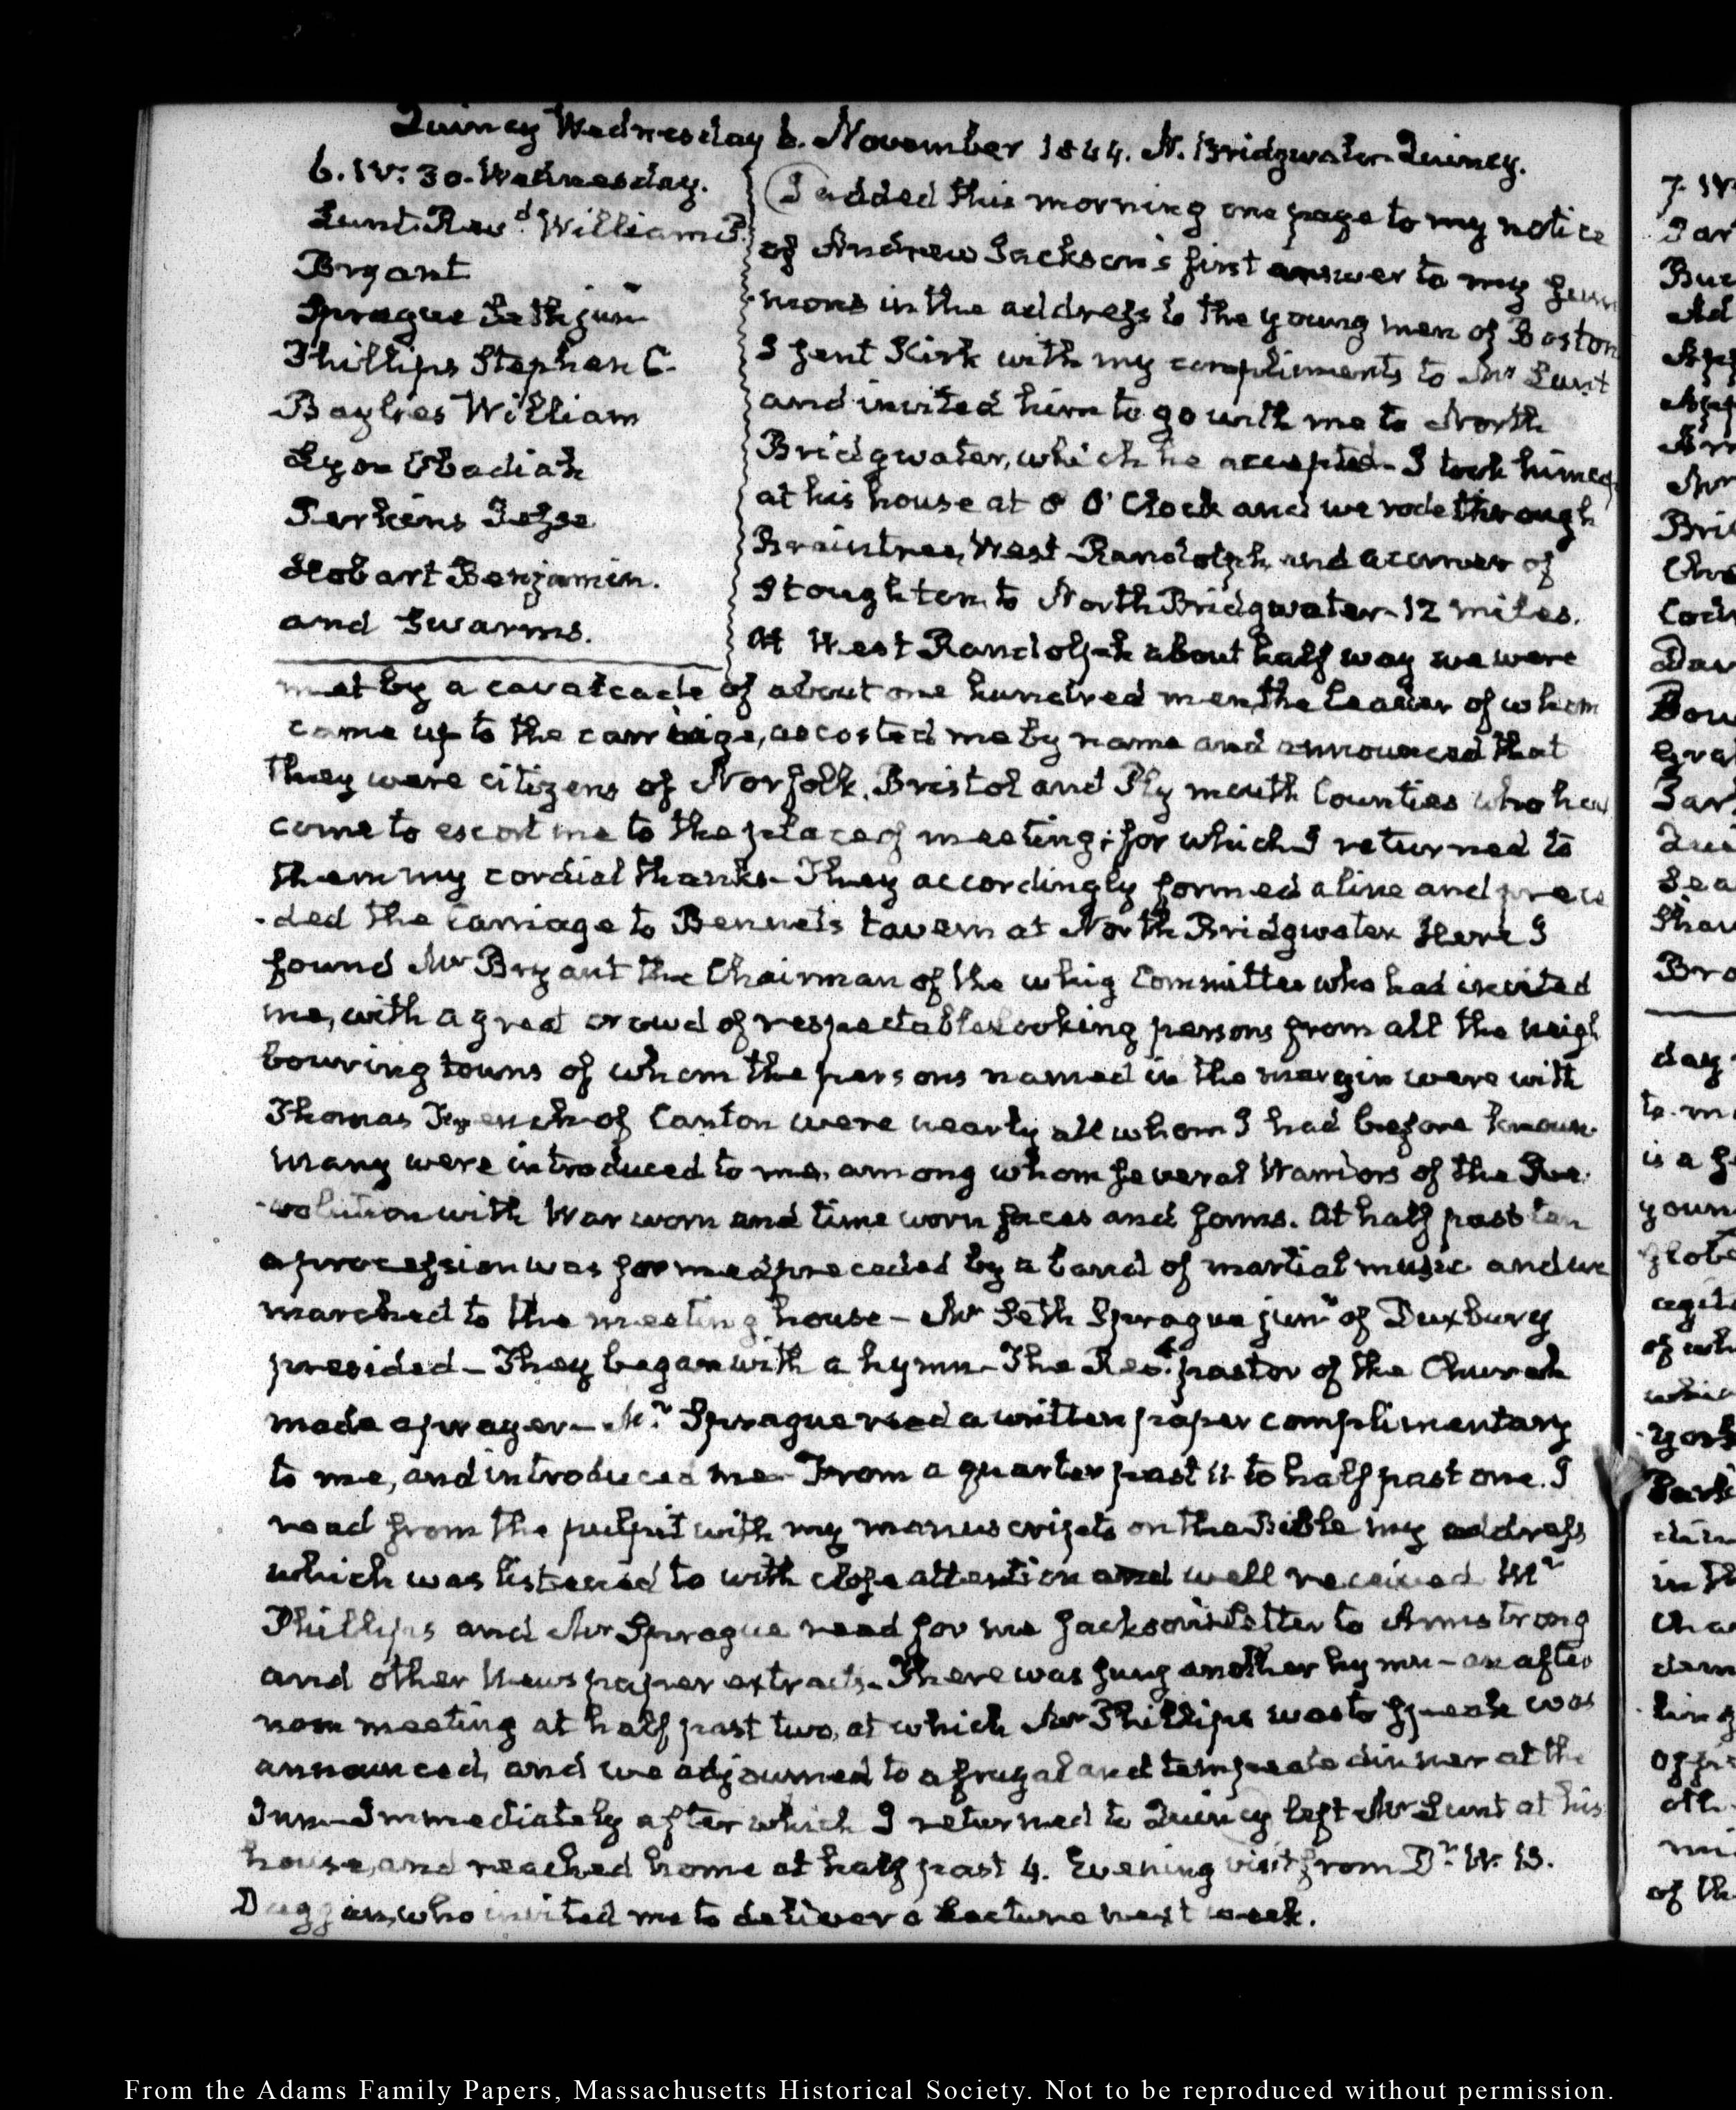 Quincy Wednesday 6. November 1844. N. Bridgwater-Quincy.
6. IV: 30. Wednesday.
Lunt. Revd. William P.
Bryant
Sprague Seth junr
Phillips Stephen C.
Baylies William
Lyon Obadiah
Perkins Jesse
Hobart Benjamin.
and Swarms.
I added this morning one page to my notice
of Andrew Jackson's first answer to my sum
mons in the address to the young men of Boston
I sent Kirk with my compliments to Mr Lunt
and invited him to go with me to North
Bridgwater, which he accepted- I took him
at his house at 8 O'Clock and we rode through
Braintree, West-Randolph, and a corner of
Stoughton to North Bridgwater-12 miles.
At West Randolph about half way we were
met by a cavalcade of about one hundred men, the leader of whom
came up to the carriage, accosted me by name and announced that
they were citizens of Norfolk, Bristol and Plymouth Counties who had
come to escort me to the place of meeting; for which I returned to
them my cordial thanks- They accordingly formed a line and prece
-ded the carriage to Bennet's tavern at North Bridgwater Here I
found Mr Bryant the Chairman of the whig Committee who had invited
me, with a great crowd of respectable looking persons from all the neigh
bouring towns of whom the persons named in the margin were with
Thomas French of Canton were nearly all whom I had before known
many were introduced to me, among whom several Warriors of the Re-
-volution with War worn and time worn faces and forms. At half past ten
a procession was formed preceded by a band of martial music and we
marched to the meeting house - Mr Seth Sprague junr of Duxbury
presided - They began with a hymn- The Revd. pastor of the Church
made a prayer- Mr. Sprague read a written paper complimentary
to me, and introduced me- From a quarter past 11 to half past one. I
read from the pulpit with my manuscripts on the Bible my address
which was listened to with close attention and well received Mr
Phillips and Mr Sprague read for me Jackson's letter to Armstrong
and other Newspaper extracts. There was sung another hymn - an after
noon meeting at half past two, at which Mr Phillips was to speak was
announced, and we adjourned to a frugal and temperate dinner at the
Inn- Immediately after which I returned to Quincy left Mr Lunt at his
house, and reached home at half past 4. Evening visit from Dr. W. B.
Duggan, who invited me to deliver a Lecture next week.
7. IV
day
is a
of wh
in th
of th
From the Adams Family Papers, Massachusetts Historical Society. Not to be reproduced without permission.